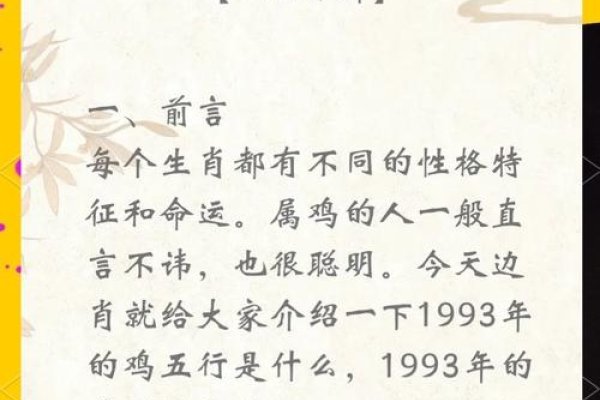 一、前言
每个生肖都有不同的性格特
征和命运。属鸡的人一般直
言不讳，也很聪明。今天边
肖就给大家介绍一下1993年
的鸡五行是什么，1993年的